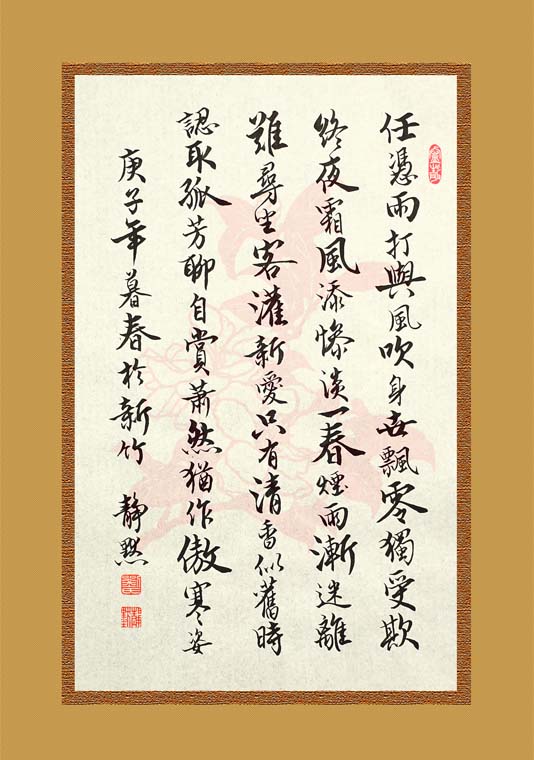 任憑雨打與風吹身世飄零獨受欺
終夜霜風添慘淡一春煙雨漸迷離
難尋生客灌新愛只有清香似舊時
認取孤芳聊自賞蕭然猶作傲寒姿
庚子年暮春於新竹 靜默